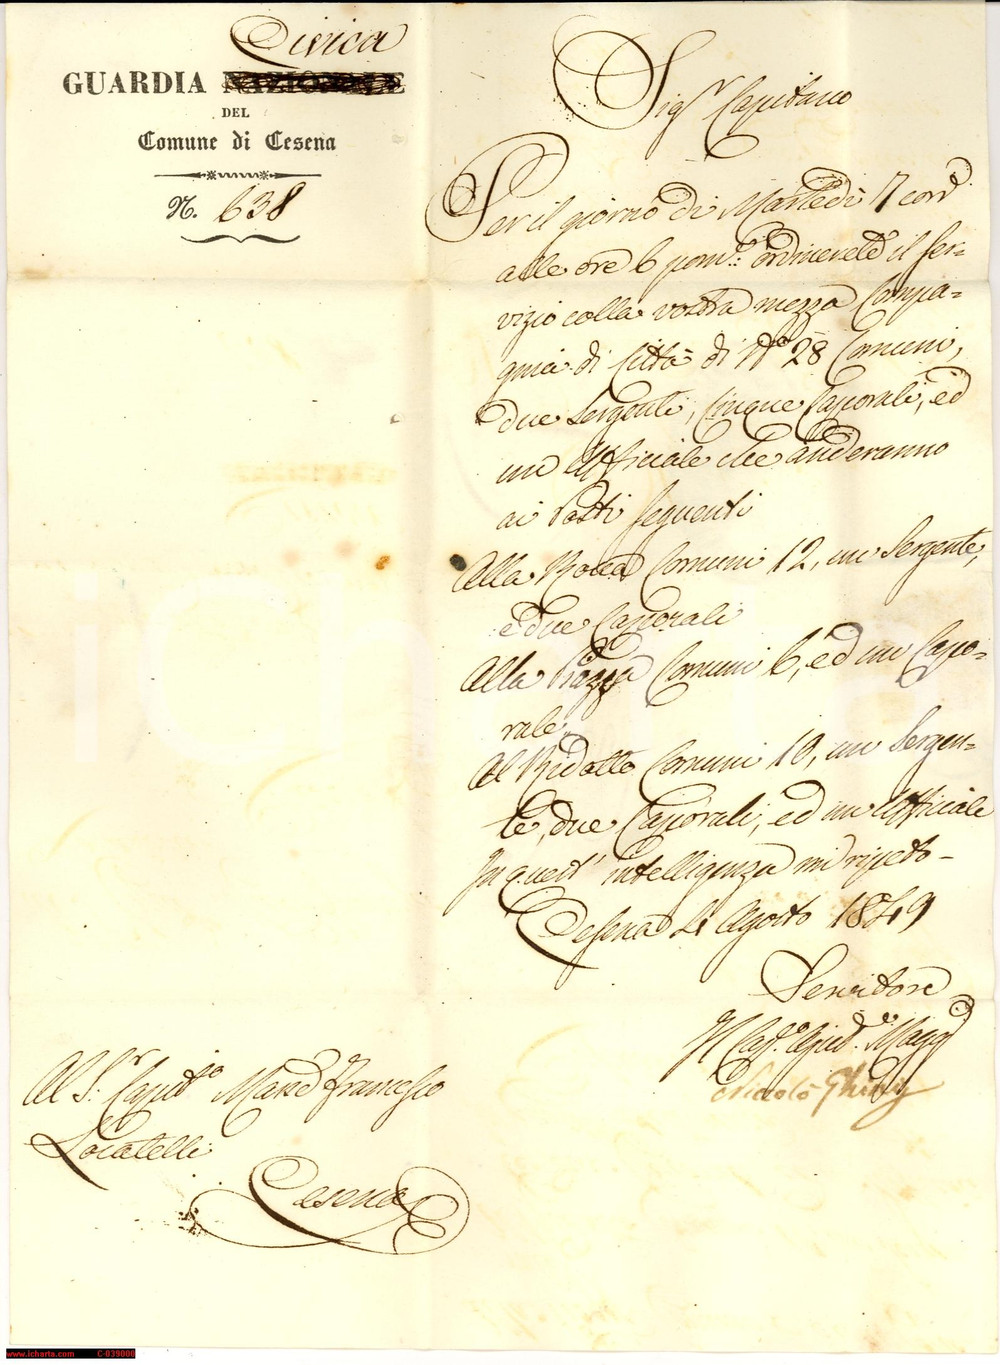 Civica
GUARDIA NAZIONALE
DEL
Comune di Cesena
N. 638
Sigr Capitano
Per il giorno di Martedì 7 corre
alle ore 6 pome: ordinerete il ser=
vizio colla vostra mezza Compa=
gnia di Città di No 28 Comuni,
due Sergenti, Cinque Caporali, ed
un Officiale che anderanno
ai Posti seguenti
Alla Rocca Comuni 12, un Sergente,
e due Caporali
Alla Piazza Comuni 6, ed un Capo=
rale
Al Ridotto Comuni 10, un Sergen=
te, due Caporali, ed un Officiale
In quest' intelligenza mi ripeto -
Cesena 4 Agosto 1849
Servitore
Il Cape Ajute Magg
Nicolò Ghini
Al Sr Capito Marse Francesco
Locatelli
Cesena
www.icharta.com C-039000